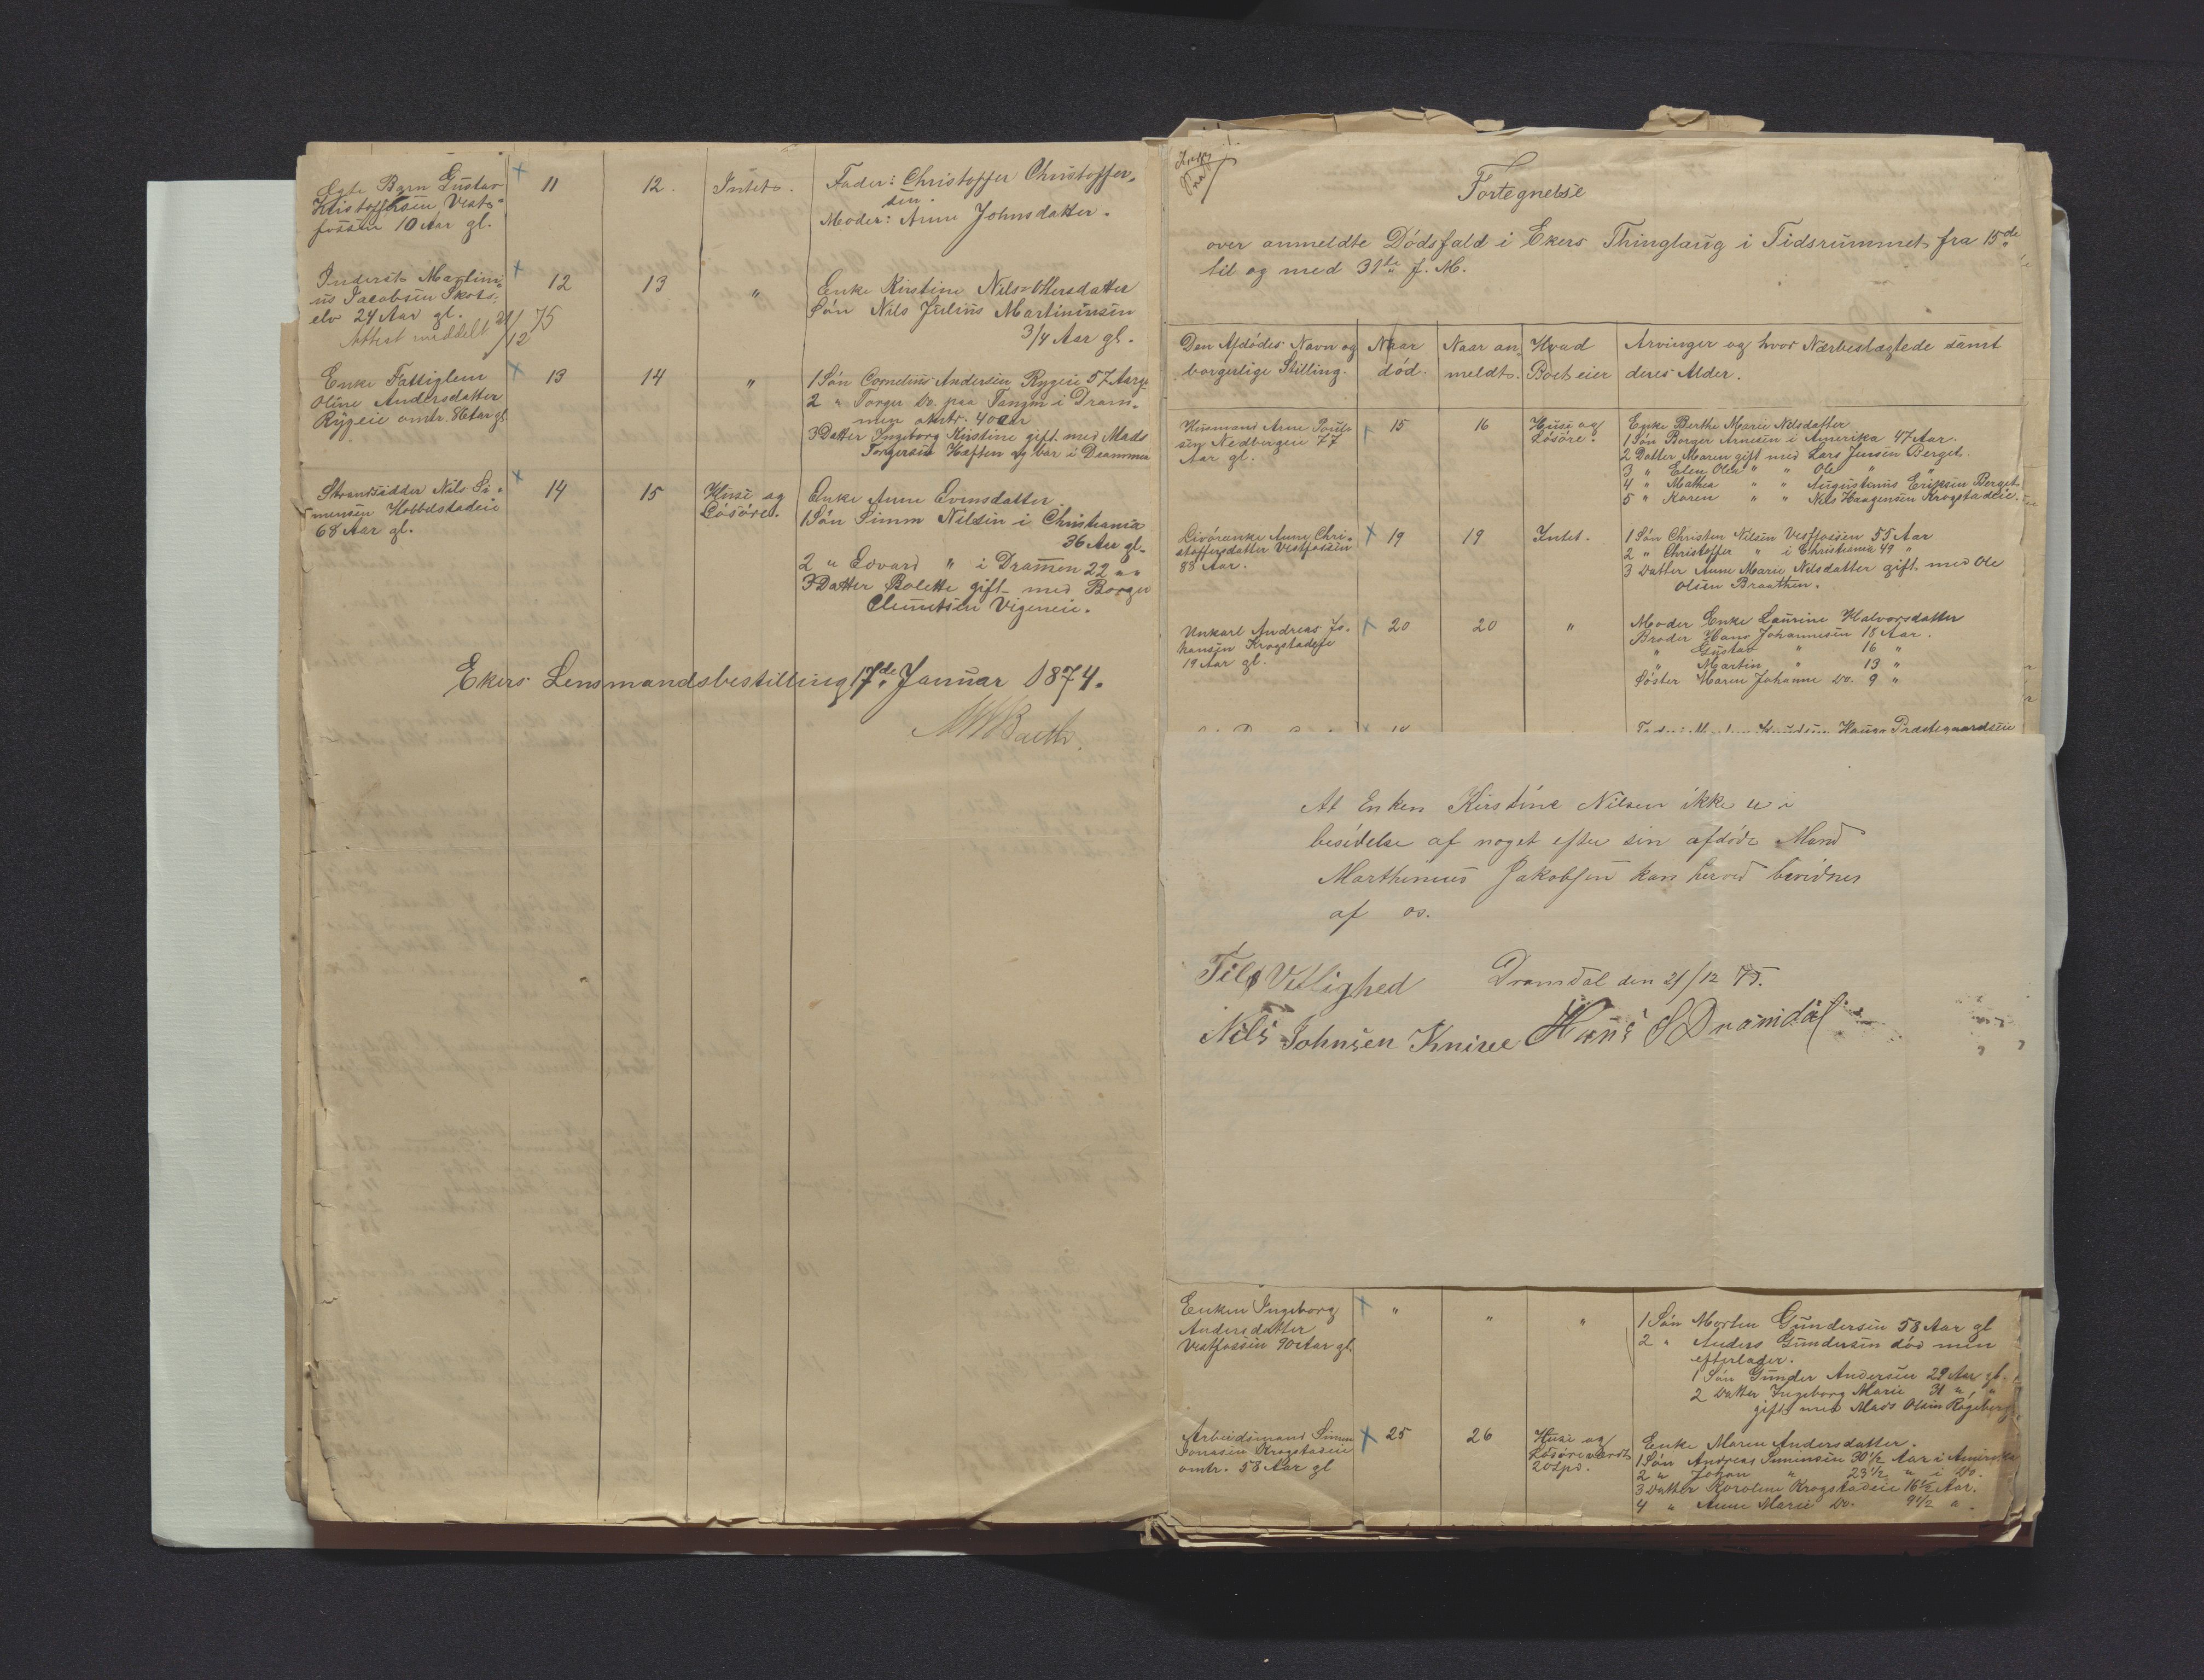 Egte Barn Gustav
Kristoffersen Vest-
fossen 10 Aar gl.
11
12.
Intet.
Fader: Christoffer Christoffer-
sen.
Moder: Anne Johnsdatter.
Inderst Martini-
us Jacobsen Skots-
elv 24 Aar gl.
Attest meddelt 21/12 75
12
13
"
Enke Kirstine Nils Ollersdatter
Søn Nils Julius Martiniusen
3/4 Aar gl.
Enke Fattiglem
Oline Andersdatter
Rygeie omtr. 86 Aar gl.
13
14
"
1 Søn Cornelius Andersen Rygeie 57 Aar gl
2 " Torger Do. paa Tangen i Dram-
men omtr. 40 Aar
3 Datter Ingeborg Kirstine gift med Mads
Torgersen Haften og bor i Drammen
Strandsidder Nils Si-
mensen Hobbelstadeie
68 Aar gl.
14
15
Huse og
Løsøre.
Enke Anne Evensdatter
1 Søn Simon Nilsen i Christiania
36 Aar gl.
2 " Edvard " i Drammen 22 " "
3 Datter Bolette gift med Borger
Clemetsen Vegeneie.
Ekers Lensmandsbestilling 17de Januar 1874.
Fortegnelse
over anmeldte Dødsfald i Ekers Thinglaug i Tidsrummet fra 15de
til og med 31te f. M.
Den Afdødes Navn og
borgerlige Stilling.
Naar
død.
Naar an-
meldt.
Hvad
Boet eier
Arvinger og hvor Nærbeslægtede samt
deres Alder.
Husmand Arne Pouls-
sen Nedbergeie 77
Aar gl.
15
16
Huse og
Løsøre.
Enke Berthe Marie Nilsdatter
1 Søn Borger Arnesen i Amerika 47 Aar.
2 Datter Maren gift med Lars Jensen Berget.
3 " Elen Olea " " Ole " "
4 " Mathea " " Augustinus Eriksen Berget.
5 " Karen " " Nils Haagensen Krogstadeie.
Livøreenke Anne Chri-
stoffersdatter Vestfossen
83 Aar.
19
19
Intet.
1 Søn Christen Nilsen Vestfossen 55 Aar
2 " Christoffer " i Christiania 49 "
3 Datter Anne Marie Nilsdatter gift med Ole
Olsen Braathen.
Unkarl Andreas Jo-
hansen Krogstadeie
19 Aar gl.
20
20
"
Moder Enke Laurine Halvorsdatter
Broder Hans Johannesen 18 Aar.
" Gustav " 16 "
" Martin " 13 "
Søster Maren Johanne Do. 9 "
Præstegaardseie
At Enken Kirstine Nilsen ikke er i
besidelse af noget efter sin afdøde Mand
Marthinius Jakobsen kan herved bevidnes
af os.
Til Vitlighed
Dramdal den 21/12 75.
Nils Johnsen Knive Hans S Dramdal
Enken Ingeborg
Andersdatter
Vestfossen 90 Aar gl.
"
"
"
1 Søn Morten Gundersen 58 Aar gl
2 " Anders Gundersen død men
efterlader.
1 Søn Gunder Andersen 29 Aar gl.
2 Datter Ingeborg Marie 31 " "
gift med Mads Olsen Røgeberg
Arbeidsmand Simen
Jonasen Krogstadeie
omtr. 58 Aar gl
25
26
Huse og
Løsøre værdt
20 Spd.
Enke Maren Andersdatter.
1 Søn Andreas Simensen 30 1/2 Aar i Amerika
2 " Johan " 23 1/2 " i Do.
3 Datter Karoline Krogstadeie 16 1/2 Aar.
4 " Anne Marie Do. 9 1/2 "